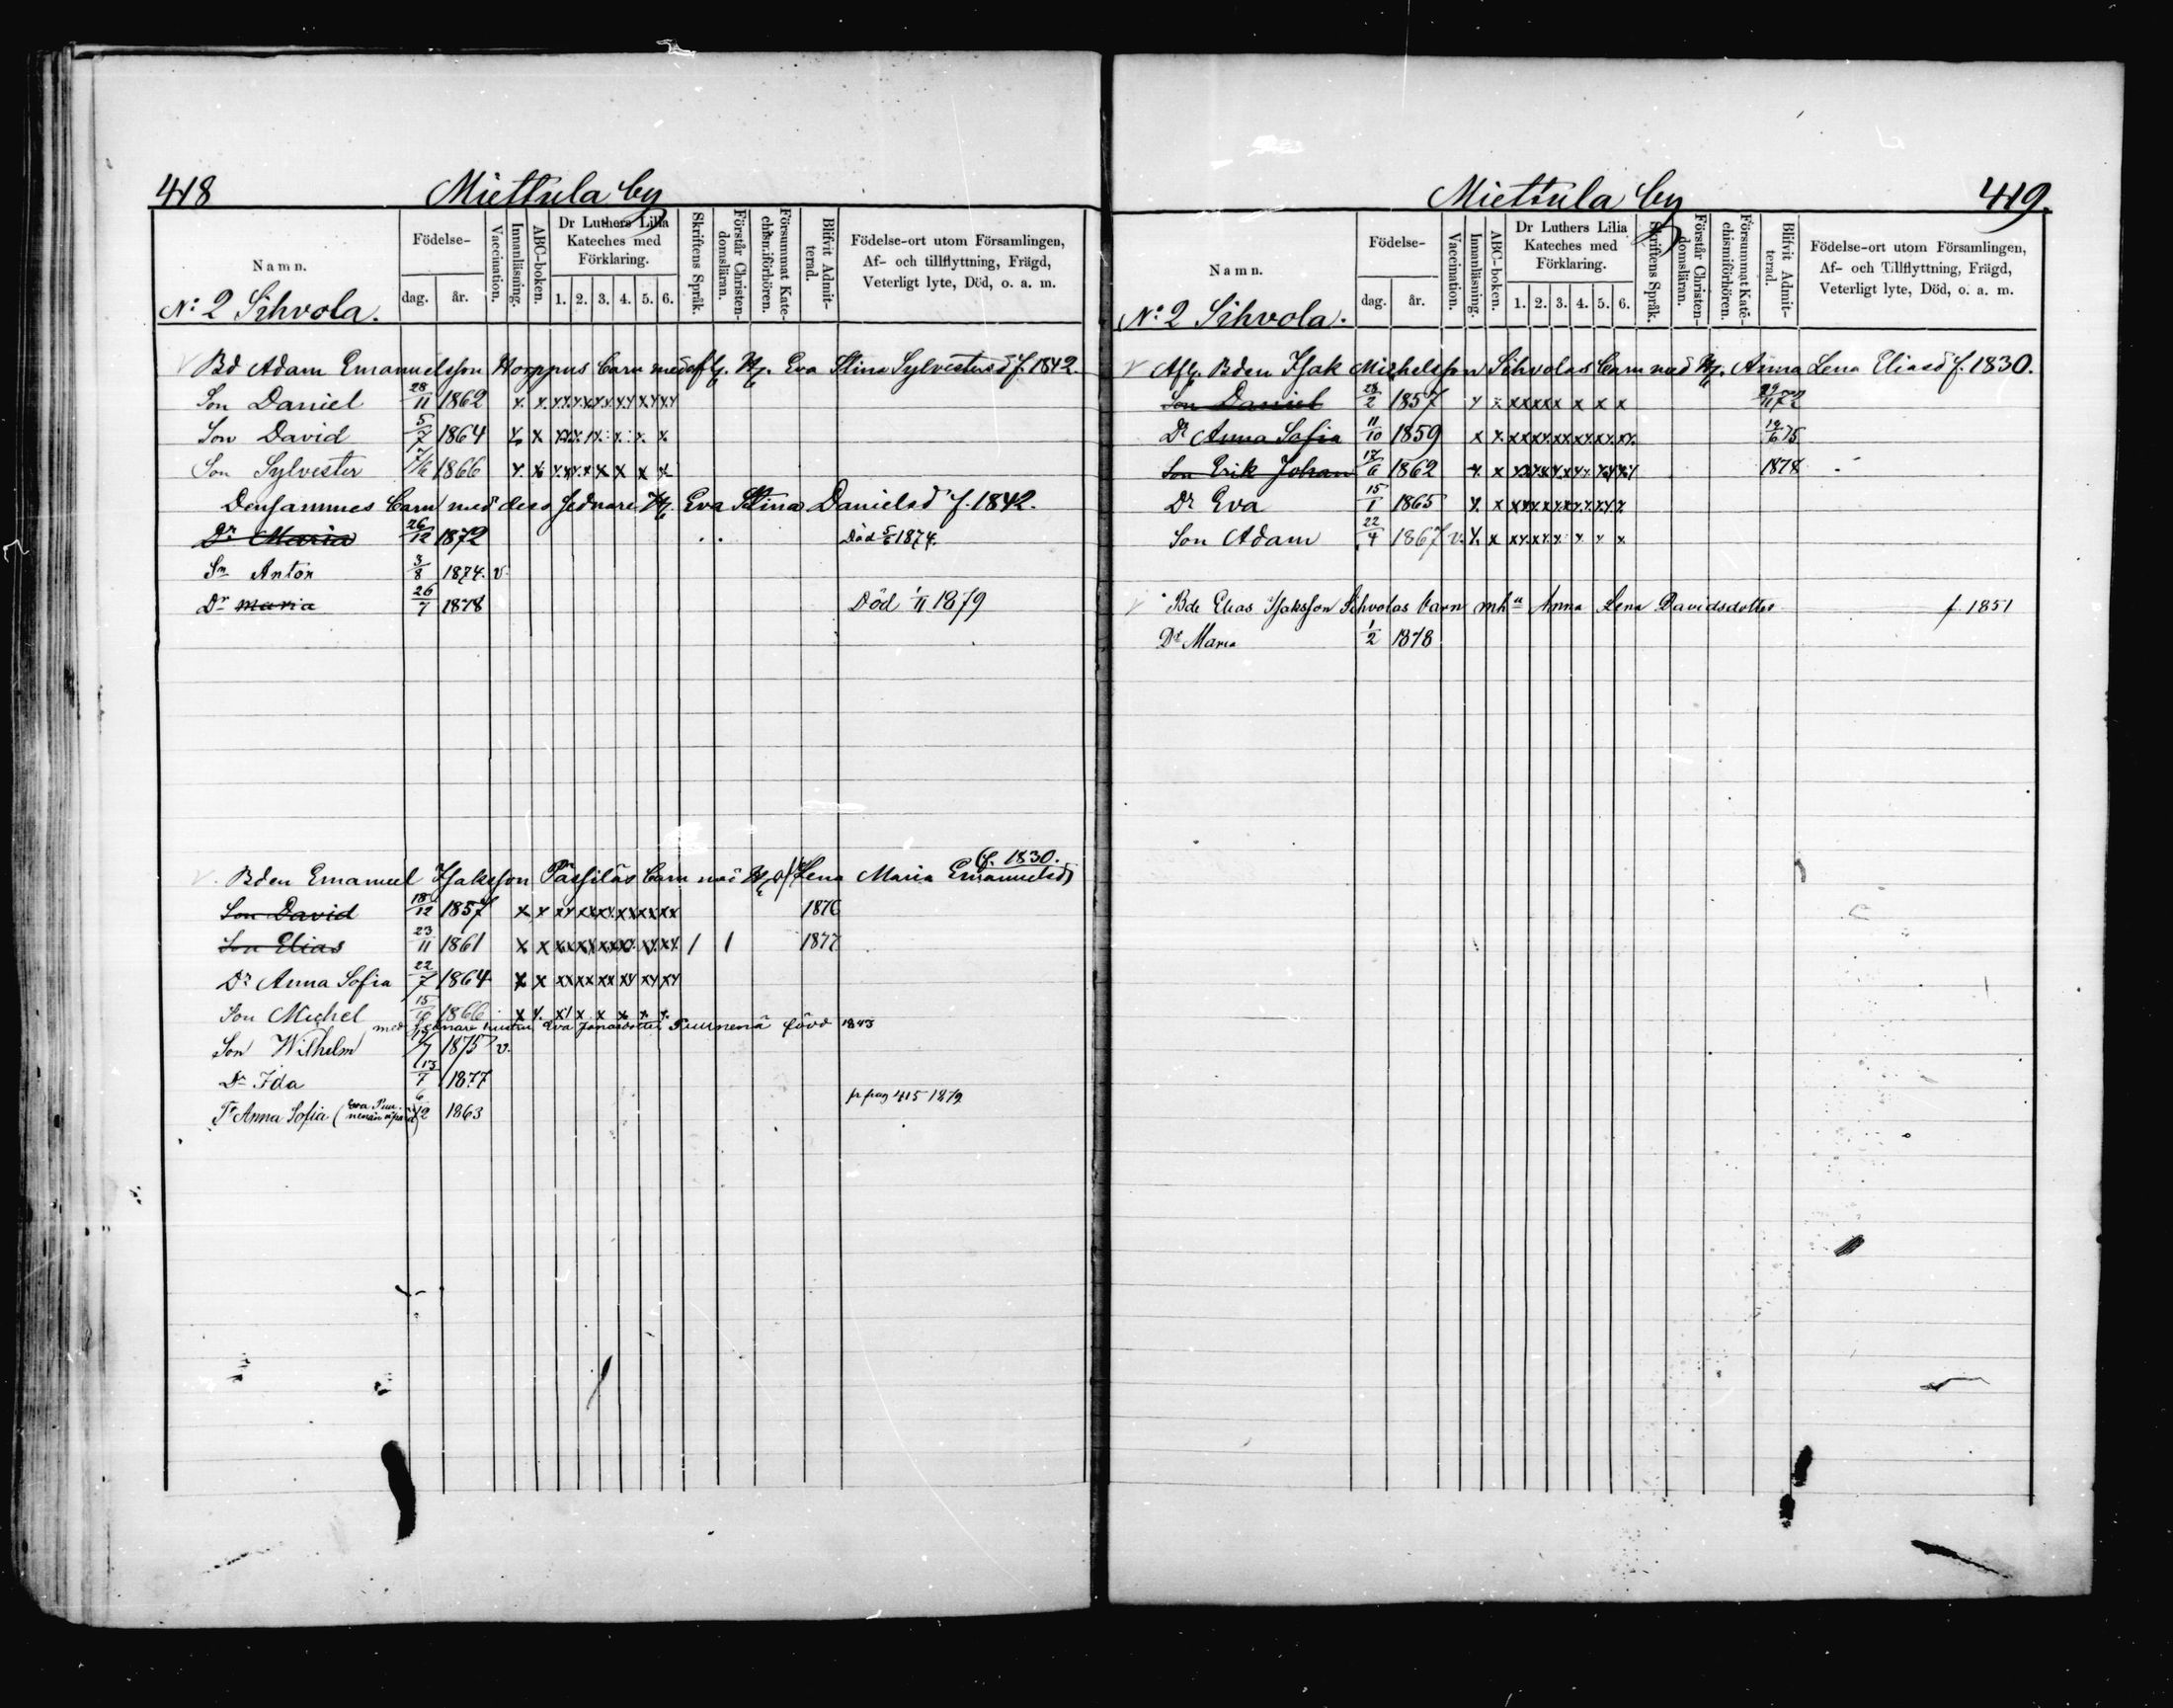 418 Miettula by
Namn. Födelse- dag. år. Vaccination. Innanläsning. ABC-boken. Dr Luthers Lilla Kateches med Förklaring. 1. 2. 3. 4. 5. 6. Skriftens Språk. Förstår Christendomsläran. Försummat Katechismiförhören. Blifvit Admitterad. Födelse-ort utom Församlingen, Af- och tillflyttning, Frägd, Veterligt lyte, Död, o. a. m.
No 2 Sihvola.
Bd Adam Emanuelsson Horppus barn med afl. H. Eva Stina Sylvestersd f. 1842
Son Daniel 28/11 1862
Son David 5/7 1864
Son Sylvester 17/6 1866
Densammes barn med dess sednare H. Eva Stina Danielsd f. 1842.
Dr Maria 26/12 1872 Död 5/5 1874.
Sn Anton 3/8 1874. v.
Dr Maria 26/7 1878 Död 1/11 1879
(f. 1830.
Bden Emanuel Isaksson Pässiläs barn med H. Lena Maria Emanuelsd)
Son David 18/12 1857 1876
Son Elias 23/11 1861 1877
Dr Anna Sofia 22/7 1864
Son Michel 15/10 1866
med sednare hustru Eva Jonasdotter Puurnenä född 1843
Son Wilhelm 1875 v.
Dr Ida 13/7 1877
fr pag 415 1879
Anna Sofia (Eva 6/12 1863
Miettula by 419.
Namn. Födelse- dag. år. Vaccination. Innanläsning. ABC-boken. Dr Luthers Lilla Kateches med Förklaring. 1. 2. 3. 4. 5. 6. Skriftens Språk. Förstår Christendomsläran. Försummat Katechismiförhören. Blifvit Admitterad. Födelse-ort utom Församlingen, Af- och Tillflyttning, Frägd, Veterligt lyte, Död, o. a. m.
No 2 Sihvola.
Afl. Bden Isak Michelsson Sihvolas barn med H. Anna Lena Eliasd f. 1830.
Son Daniel 28/2 1857 29/11 72
Dr Anna Sofia 11/10 1859 19/6 75
Son Erik Johan 17/6 1862 1878
Dr Eva 15/1 1865
Son Adam 22/4 1867 v.
Bde Elias Isaksson Sihvolas barn m hu Anna Lena Davidsdotter f. 1851
Dr Maria 1/2 1878